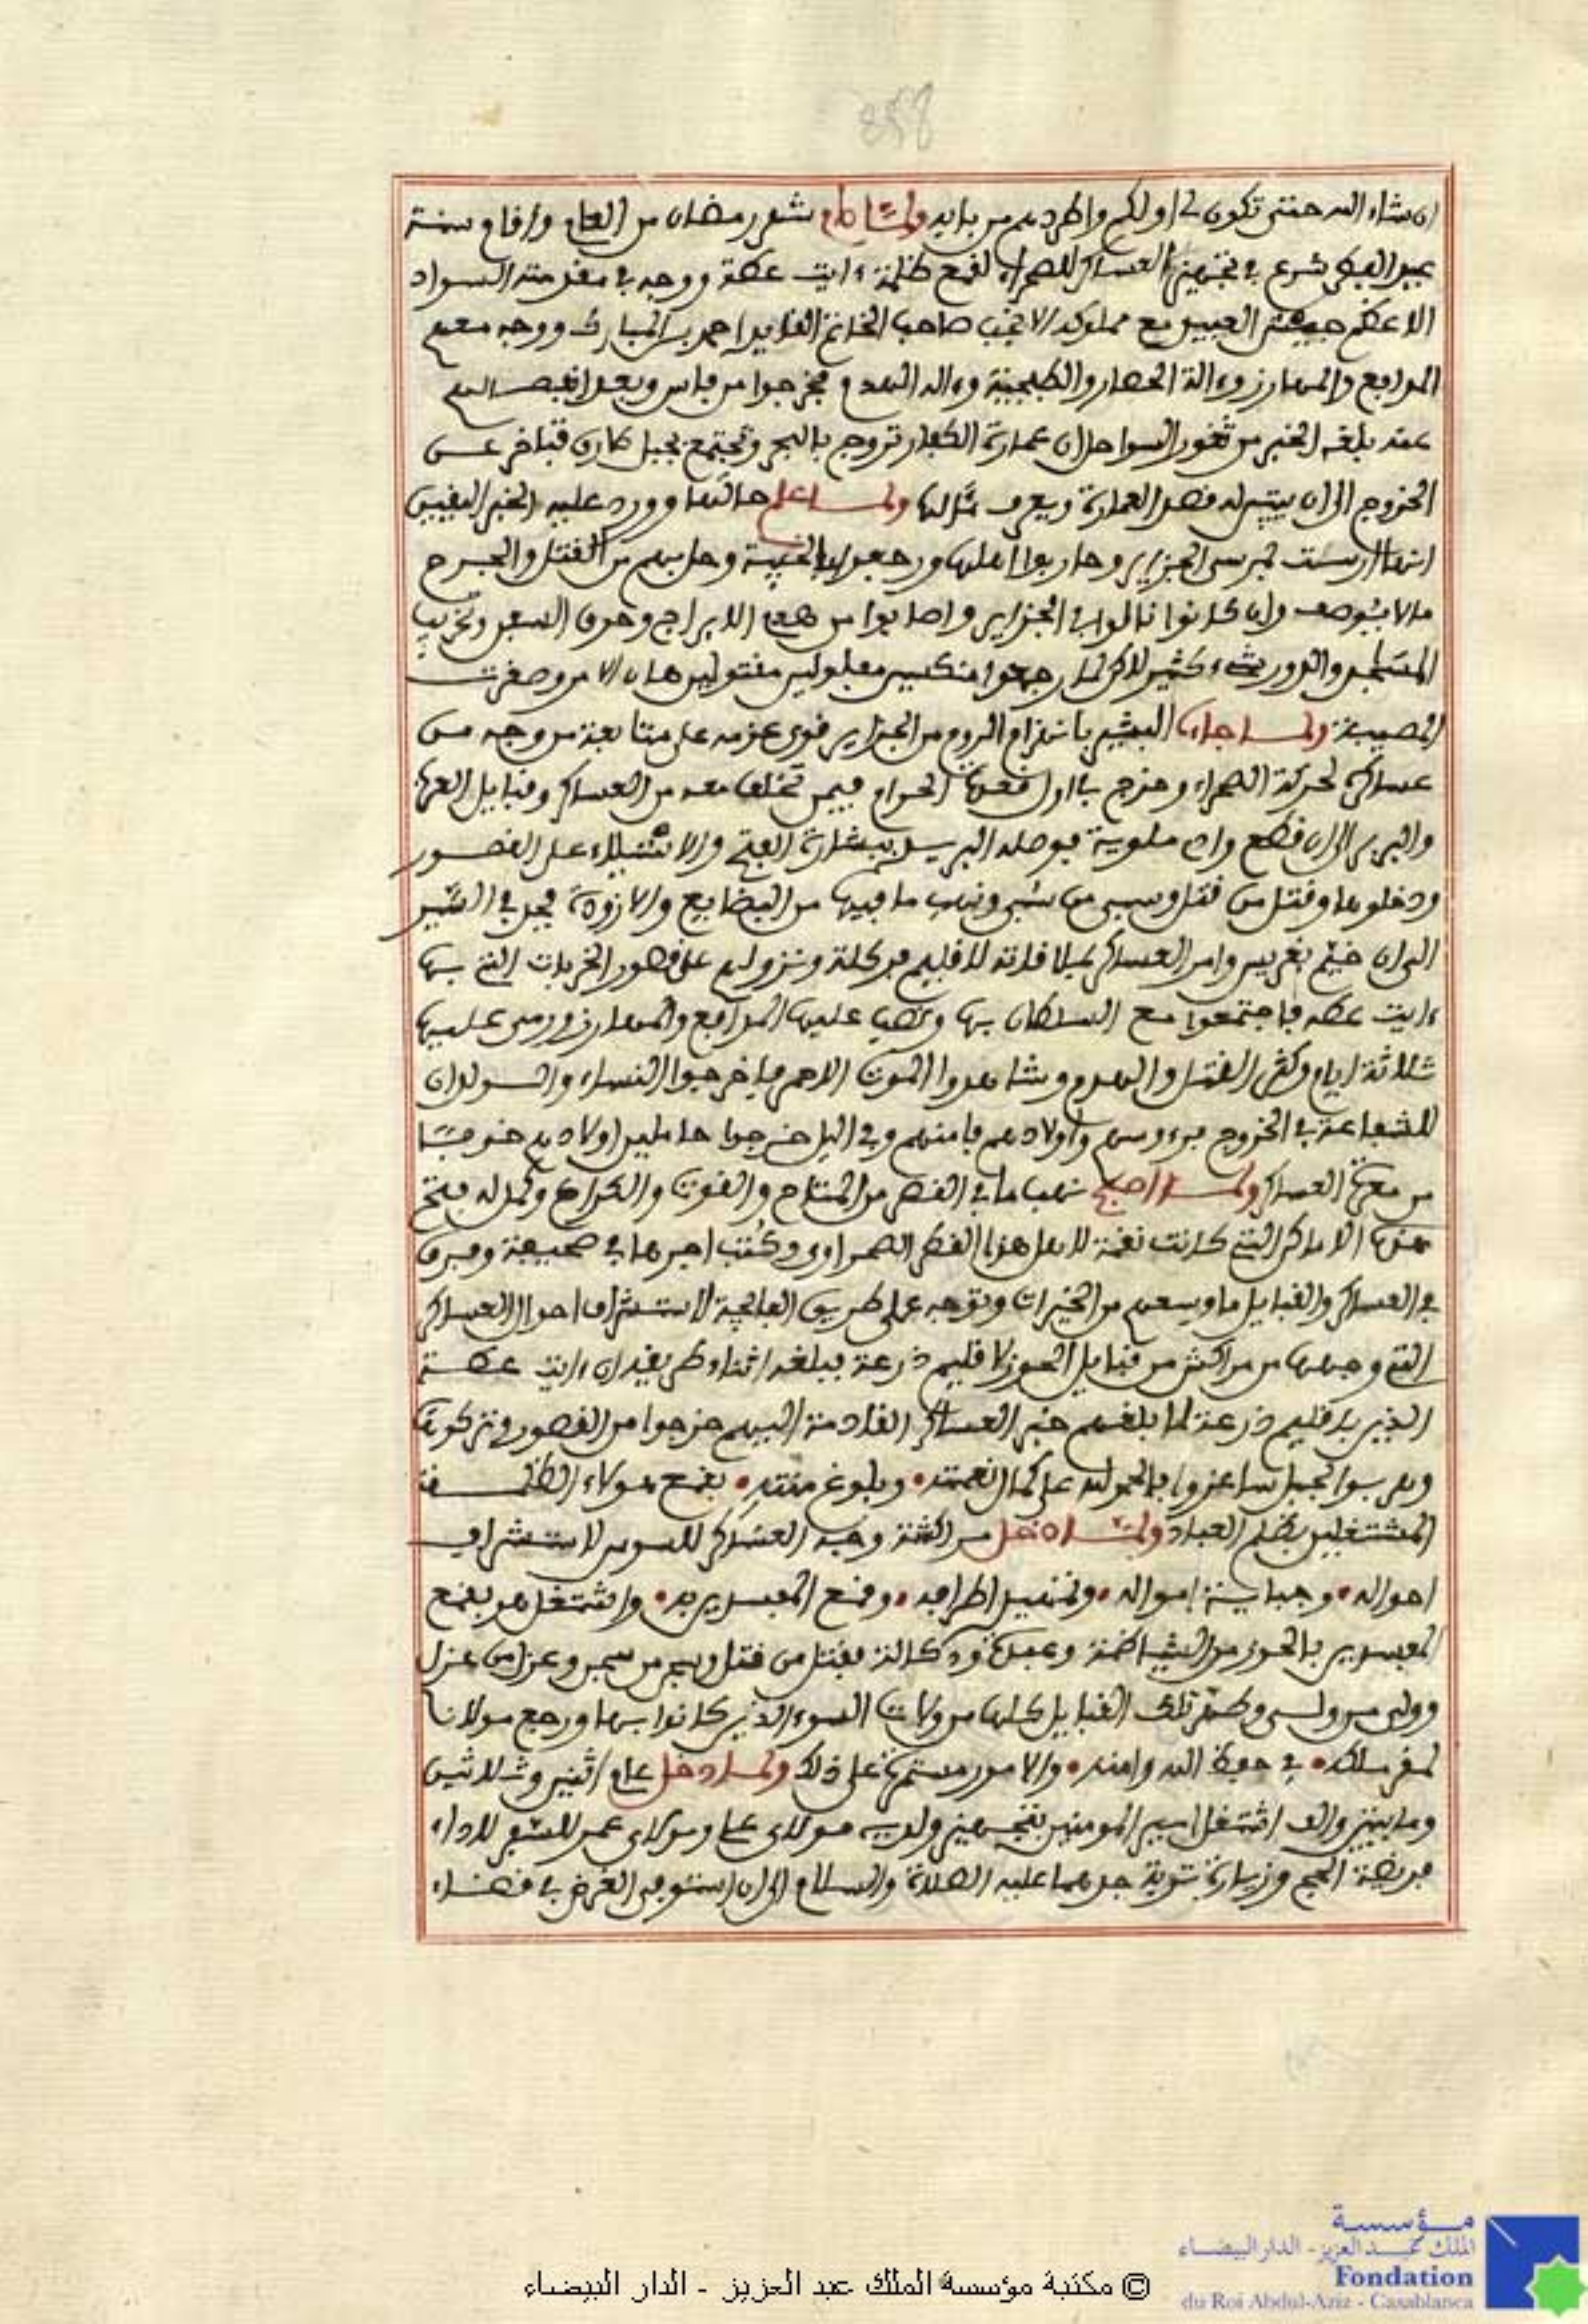 358
ان شاء الله حتى تكون لي اولكم واطردهم من بابه ولما كان شهر رمضان من العام واقام سنة
عيد الفطر شرع في تجهيز العساكر للصحراء لقمع ظلمة ءايت عطة ووجه في مقدمته السواد
الاعظم جيش العبيد مع مملوكه الانجب صاحب الخاتم القايد احمد بن المبارك ووجه معهم
المدافع والمهارز وءالة الحصار والطبجية وءالة الهدم فخرجوا من فاس وبعد انفصالهم
عنه بلغه الخبر من ثغور السواحل ان عمارة الكفار تروج بالبحر وتجتمع بجبل طارق فتاخر عن
الخروج الى ان يتبين له فصل العمارة ويعرف مئالها ولما علم حالها وورد عليه الخبر اليقين
انها ارست بمرسى الجزاير وحاربوا اهلها ورجعوا بالخيبة وحل بهم من القتل والجرح
ما لا يوصف وان كانوا نالوا في الجزاير واصابوا من هدم الابراج وحرق السفن وتخريب
المساجد والدور شيء كثير لاكن لما رجعوا منكسين مفلولين مقتولين هان الامر وصغرت
المصيبة ولما جاء البشير بانهزام الروم من الجزاير قوى عزمه على متابعة من وجه من
عساكره لحركة الصحراء وخرج في اول قعدة الحرام فيمن تخلف معه من العساكر وقبايل العرب
والبربر الى ان قطع واد ملوية فوصله البريد ببشارة الفتح والاستيلاء على القصور
ودخلوها وقتل من قتل وسبي من سبي ونهب ما فيها من البضايع والازودة فجد في السير
الى ان خيم بغريس وامر العساكر بملاقاته لاقليم فركلة ونزولهم على قصور الخربات التي بها
ءايت عطه فاجتمعوا مع السلطان بها ونصب عليها المدافع والمهارز ورمى عليها
ثلاثة ايام وكثر القتل والهدم وشاهدوا الموت الاحمر فاخرجوا النساء والولدان
للشفاعة في الخروج برءوسهم واولادهم فامنهم وفي اليل خرجوا حاملين اولادهم خوفا
من معرة العساكر ولما اصبح نهب ما في القصر من المتاع والقوت والكراع وكمل له فتح
هذه الاماكن التي كانت نقمة لاهل هذا القطر الصحراوي وكتب اجرها في صحيفته وفرق
في العساكر والقبايل ما وسعهم من الخيرات وتوجه على طريق الفايجة لاستشراف احوال العساكر
التي وجهها من مراكش من قبايل الحوز لاقليم ذرعة فبلغه اثناء طريقه ان ءايت عطة
الذين باقليم ذرعة لما بلغهم خبر العساكر القادمة اليهم خرجوا من القصور وتركوها
وهربوا لجبل ساغرو فالحمد لله على كمال نعمته وبلوغ منته بقمع هولاء الطايفة
المشتغلين بظلم العباد ولما دخل مراكشة وجه العساكر للسوس لاستشراف
احواله وجباية امواله وتمهيد اطرافه وقمع المفسدين به واشتغل هو بقمع
المفسدين بالحوز من الشياظمة وعبدة ودكالة فقتل من قتل وسجن من سجن وعزل من عزل
وولى من ولى وطهر تلك القبايل كلها من ولات السوء الذين كانوا بها ورجع مولانا
لمقر ملكه في حفظ الله وامنه والامور مستمرة على ذلك ولما دخل عام اثنين وثلاثين
ومايتين والف اشتغل امير المومنين بتجهيز ولديه مولاي علي ومولاي عمر للسفر لاداء
فريضة الحج وزيارة تربة جدهما عليه الصلاة والسلام الى ان استوفى الغرض في قضاء
© مكتبة مؤسسة الملك عبد العزيز - الدار البيضاء
مؤسسة
الملك عبد العزيز - الدار البيضاء
Fondation
du Roi Abdul-Aziz - Casablanca